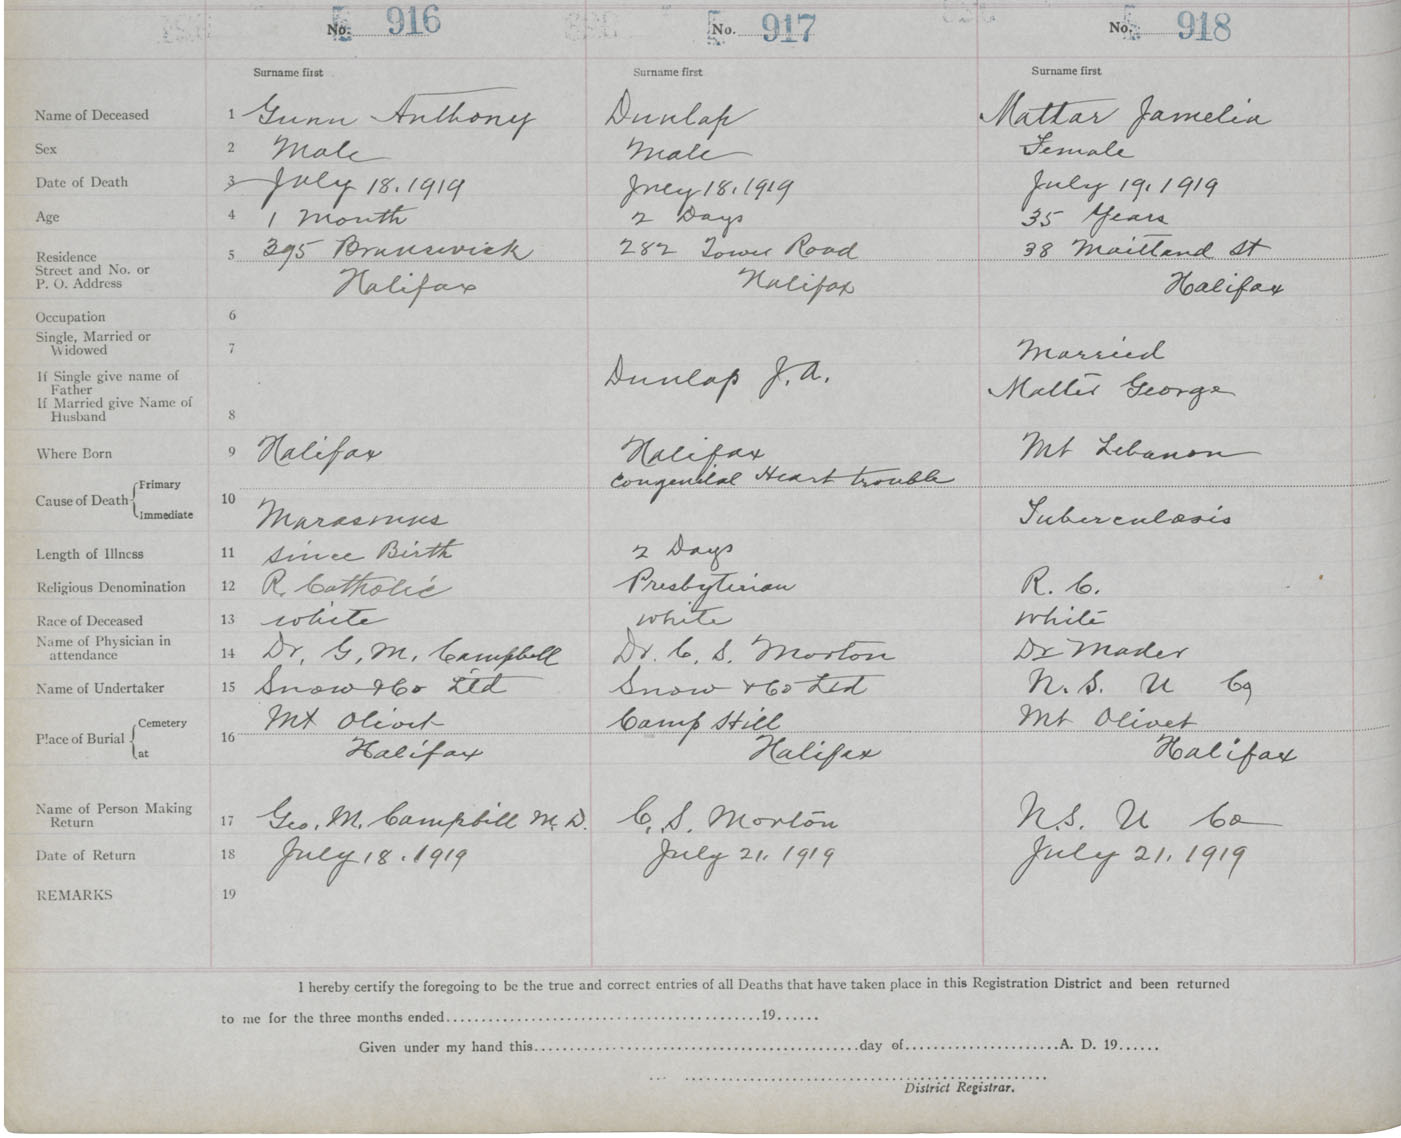 No. 916 No. 917 No. 918
Surname first Surname first Surname first
Name of Deceased 1 Gunn Anthony Dunlap Mattar Jamelia
Sex 2 Male Male Female
Date of Death 3 July 18. 1919 July 18. 1919 July 19. 1919
Age 4 1 Month 2 Days 35 Years
Residence 5 395 Brunswick 282 Tower Road 38 Maitland St
Street and No. or
P. O. Address Halifax Halifax Halifax
Occupation 6
Single, Married or
Widowed 7 Married
If Single give name of Dunlap J. A.
Father Mattis George
If Married give Name of
Husband 8
Where Born 9 Halifax Halifax Mt Lebanon
Cause of Death Primary 10 Congenital Heart trouble
Immediate Marasmus Tuberculosis
Length of Illness 11 since Birth 2 Days
Religious Denomination 12 R. Catholic Presbyterian R. C.
Race of Deceased 13 white white white
Name of Physician in
attendance 14 Dr. G. M. Campbell Dr. C. S. Morton Dr Mader
Name of Undertaker 15 Snow & Co Ltd Snow & Co Ltd N. S. U Co
Place of Burial Cemetery 16 Mt Olivet Camp Hill Mt Olivet
at Halifax Halifax Halifax
Name of Person Making
Return 17 Geo. M. Campbell M. D. C. S. Morton N. S. U Co
Date of Return 18 July 18. 1919 July 21. 1919 July 21. 1919
REMARKS 19
I hereby certify the foregoing to be the true and correct entries of all Deaths that have taken place in this Registration District and been returned
to me for the three months ended 19
Given under my hand this day of A. D. 19
District Registrar.